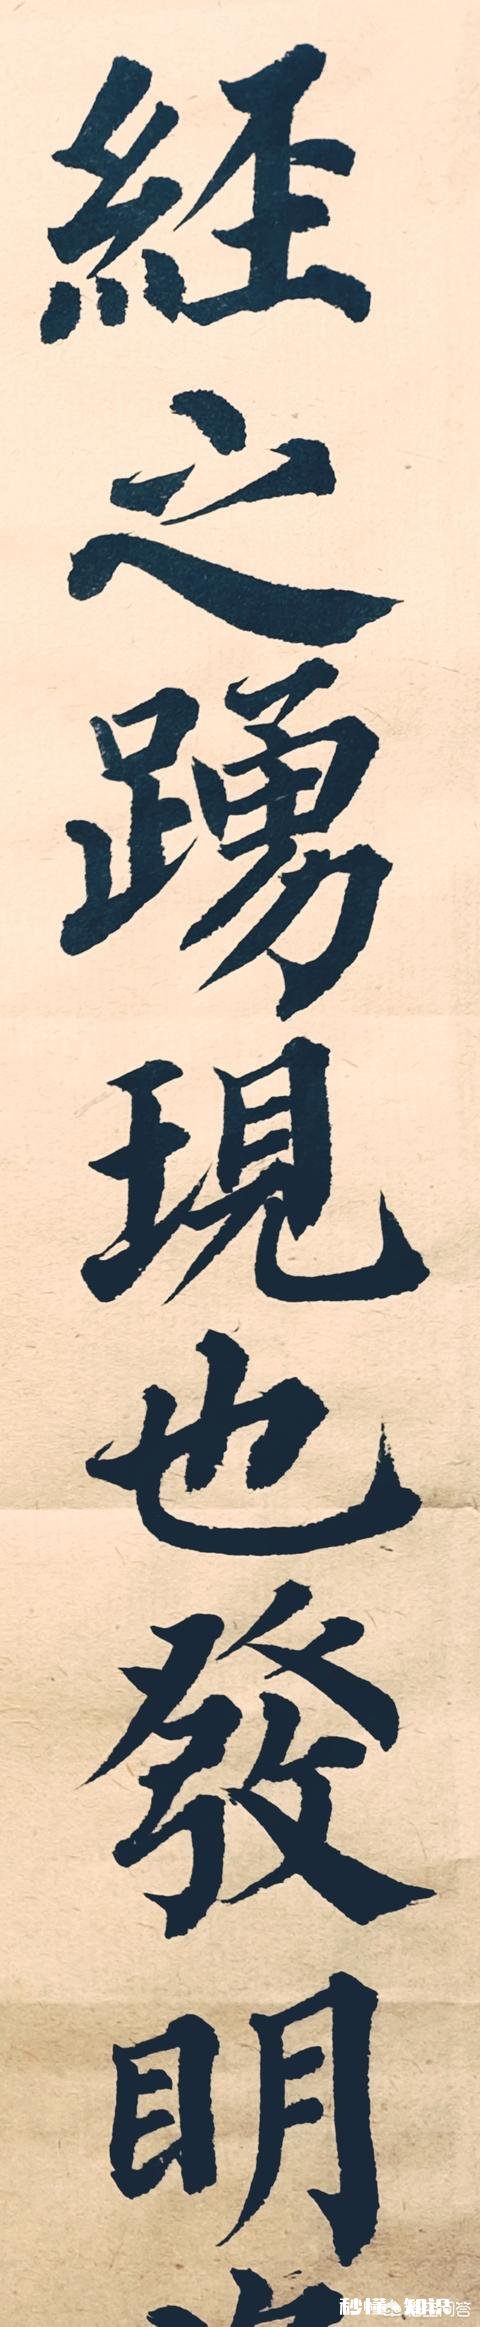 經之踴現也發明
秒懂知识